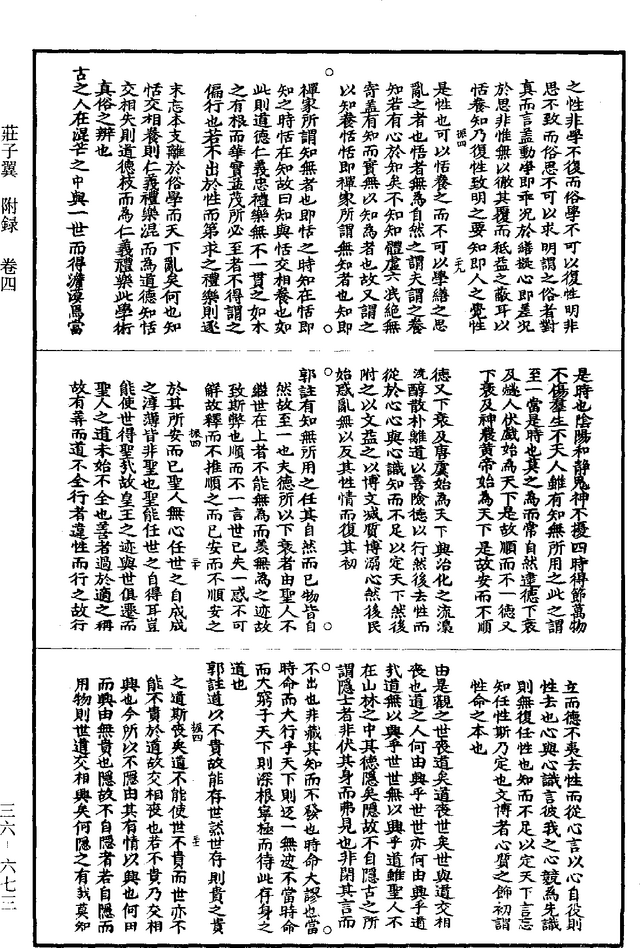 莊子翼　附録　卷四
之性非學不復而俗學不可以復性明非
思不致而俗思不可以求明謂之俗者對
真而言蓋動學即乖況於繕擬心即差況
於思非惟無以徹其覆而秪益之蔽耳以
恬養知乃復性致明之要知即人之覺性
振四　二九
是性也可以恬養之而不可以學繕之思
亂之者也恬者無為自然之謂夫謂之養
知若有心於知矣不知知體虛六泯絕無
寄蓋有知而實無以知為者也故又謂之
以知養恬恬即禪家所謂無知者也知即
禪家所謂知無者也即恬之時知在恬即
知之時恬在知故曰知與恬交相養也如
此則道德仁義忠禮樂無不一貫之如木
之有根而華實益茂所必至者不得謂之
偏行也若不出於性而第求之禮樂則逐
末忘本支離於俗學而天下亂矣何也知
恬交相養則仁義禮樂混而為道德知恬
交相失則道德枝而為仁義禮樂此學術
真俗之辨也
古之人在混芒之中與一世而得澹漠焉當
是時也陰陽和靜鬼神不擾四時得節萬物
不傷羣生不夭人雖有知無所用之此之謂
至一當是時也莫之為而常自然逮德下衰
及燧人伏戲始為天下是故順而不一德又
下衰及神農黃帝始為天下是故安而不順
德又下衰及唐虞始為天下興治化之流澆
淳散朴離道以善險德以行然後去性而
從於心心與心識知而不足以定天下然後
附之以文益之以博文滅質博溺心然後民
始惑亂無以反其性情而復其初
郭註有知無所用之任其自然而已物皆自
然故至一也夫德所以下衰者由聖人不
繼世在上者不能無為而羨無為之迹故
致斯弊也順而不一言世已失一惑不可
解故釋而不推順之而已安而不順安之
振四　三十
於其所安而已聖人無心任世之自成成
之淳薄皆非聖也聖能任世之自得耳豈
能使世得聖哉故皇王之迹與世俱遷而
聖人之道未始不全也善者過於適之稱
故有善而道不全行者違性而行之故行
立而德不夷去性而從心言以心自役則
性去也心與心識言彼我之心競為先識
則無復任性也知而不足以定天下言忘
知任性斯乃定也文博者心質之飾初謂
性命之本也
由是觀之世喪道矣道喪世矣世與道交相
喪也道之人何由興乎世世亦何由興乎道
哉道無以興乎世世無以興乎道雖聖人不
在山林之中其德隱矣隱故不自隱古之所
謂隱士者非伏其身而弗見也非閉其言而
不出也非藏其知而不發也時命大謬也當
時命而大行乎天下則反一無迹不當時命
而大窮乎天下則深根寧極而待此存身之
道也
郭註道以不貴故能存世然世存則貴之貴
振四
之道斯喪矣道不能使世不貴而世亦不
能不貴於道故交相喪也若不貴乃交相
興也今所以不隱由其有情以興也何由
而興由無貴也隱故不自隱者若自隱而
用物則世道交相興矣何隱之有哉莫知
三六－六七三